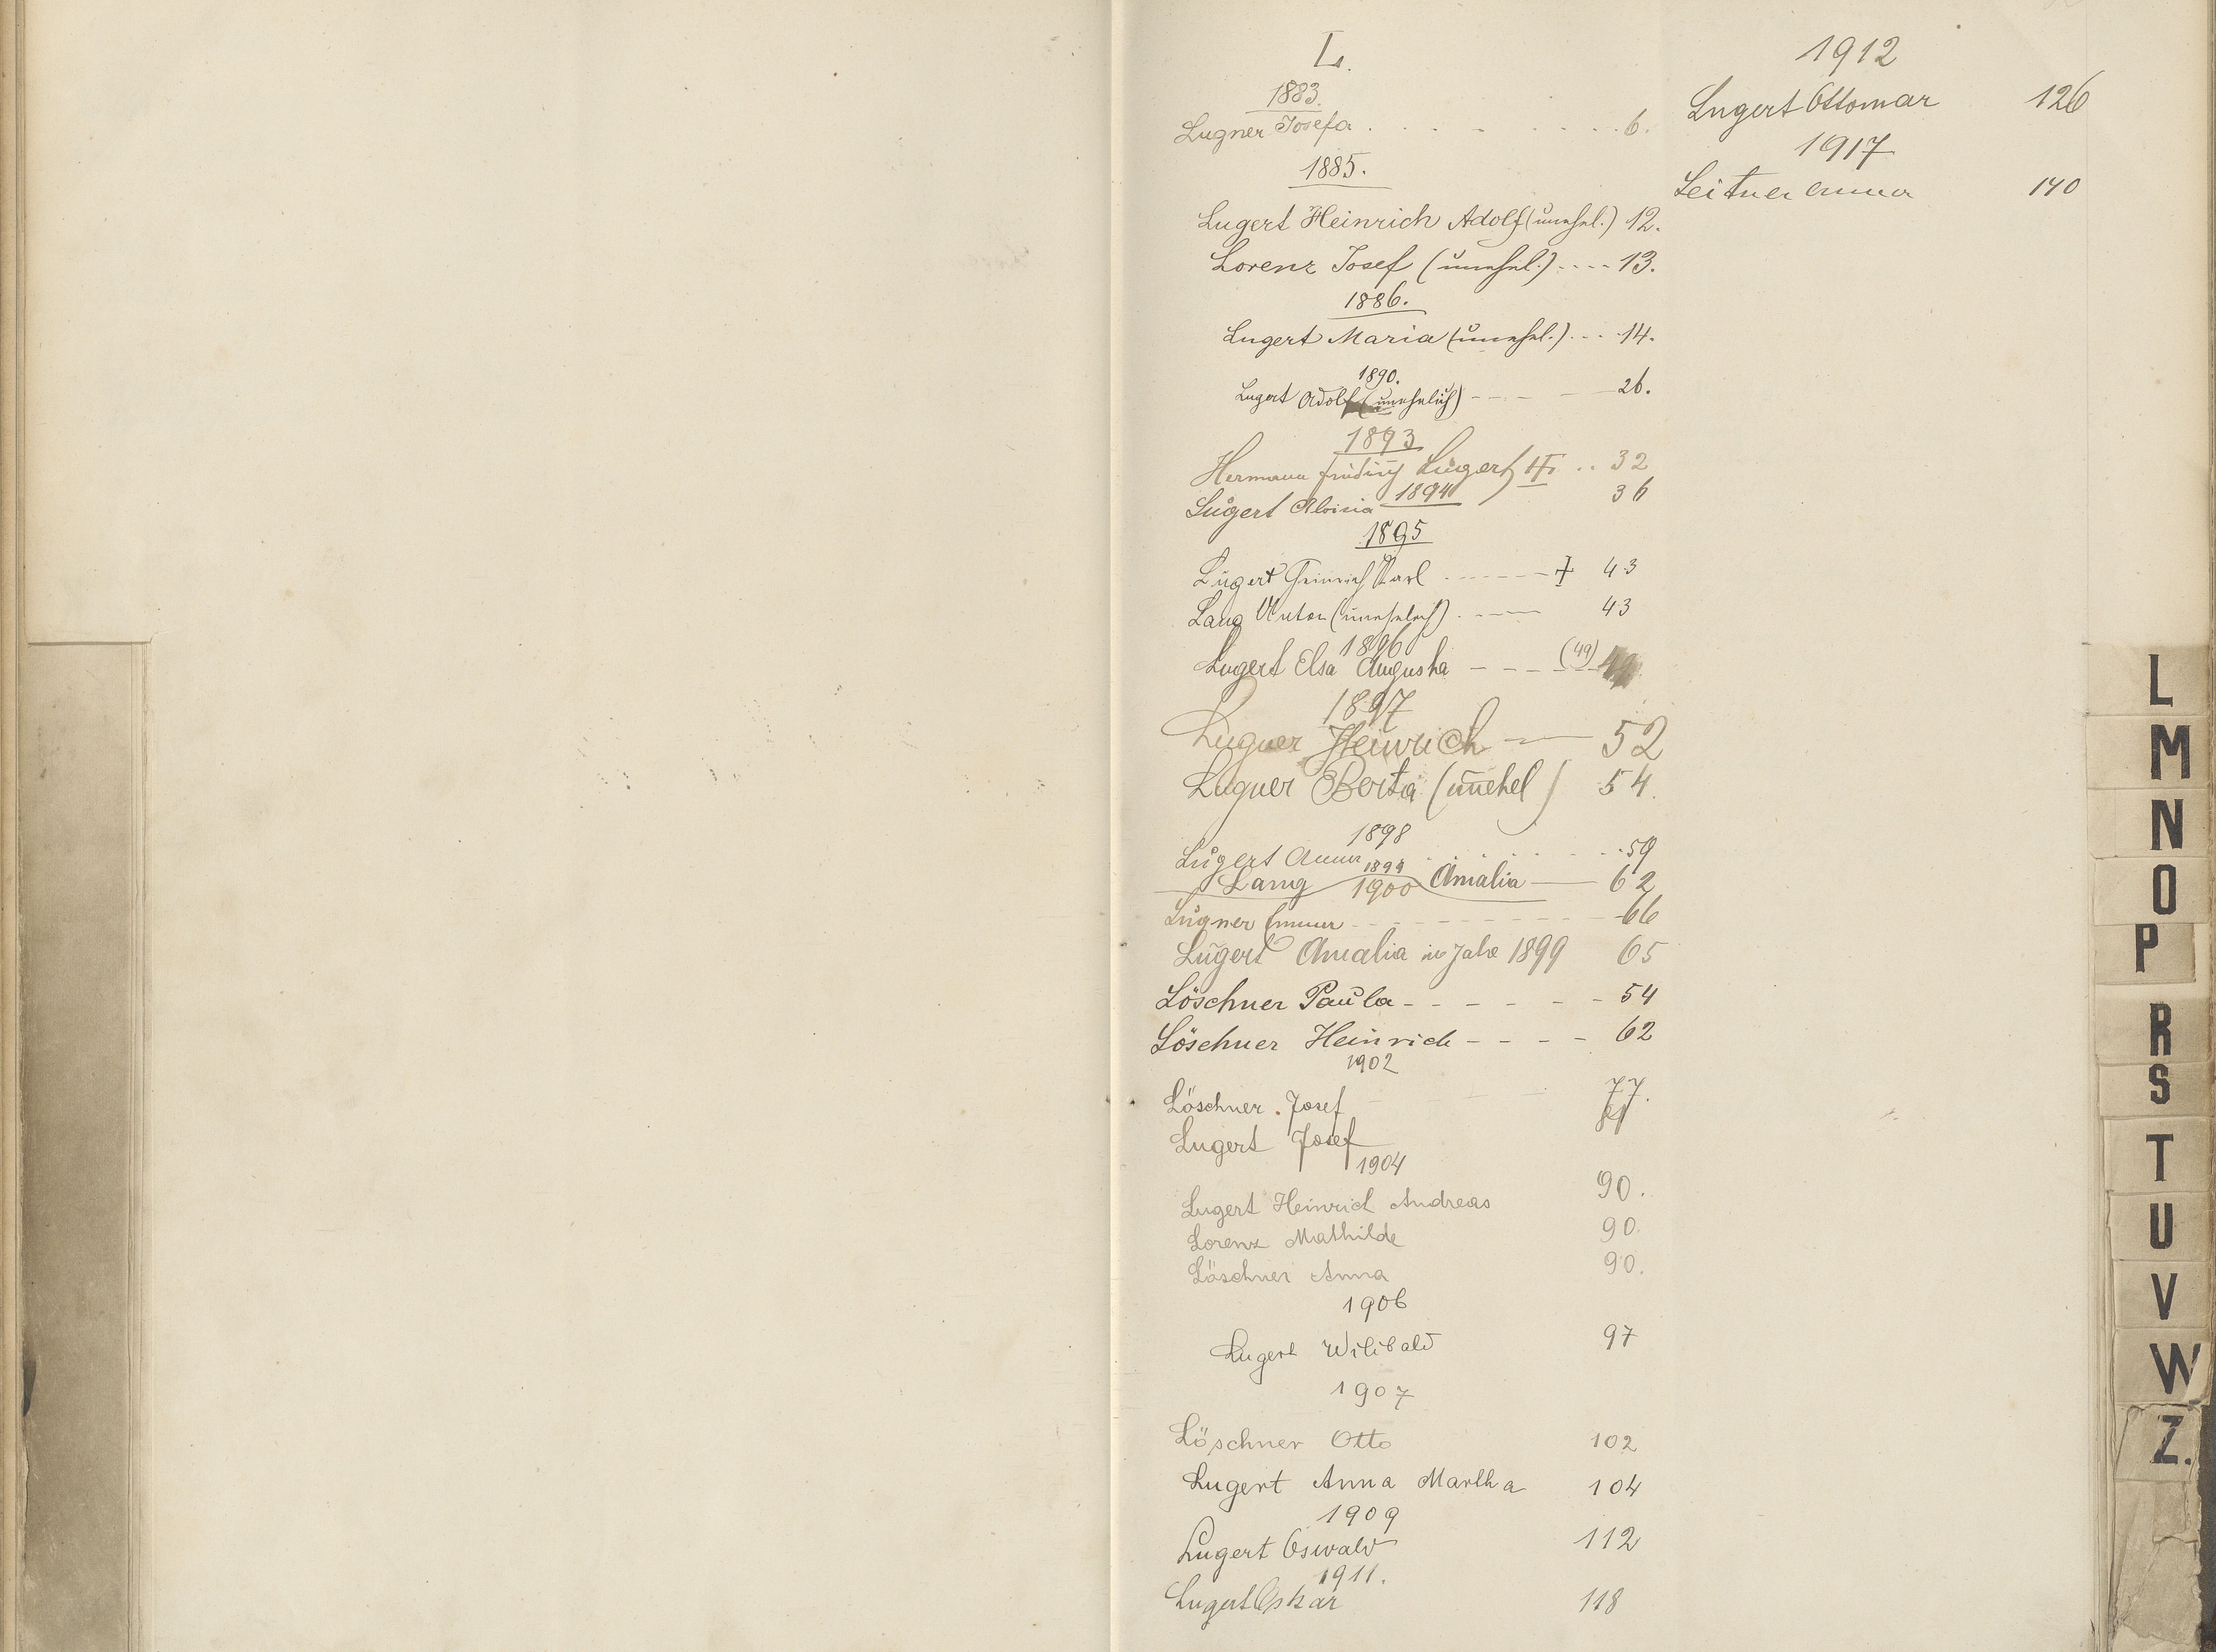 L.
1883.
Lugner Josefa . . . . . . . . 6.
1885.
Lugert Heinrich Adolf (unehel.) 12.
Lorenz Josef (unehel.) .... 13.
1886.
Lugert Maria (unehel.) ... 14.
1890.
Lugert Adolf (unehelich) - - - - 26.
1893
Hermann Friedrich Lugert .. 32
1894
Lugert Aloisia 36
1895
Lugert Heinrich Karl ------ + 43
Lang Anton (unehelich) . ---- 43
1896
Lugert Elsa Augusta - - - (49)
1897
Lugner Heinrich — 52
Lugner Berta (unehel) 54.
1898
Lugert Anna . . . . . . . 59
1899
Lang Amalia — 62
1900
Lugner Emma - - - - - - - 66
Lugert Amalia im Jahre 1899 65
Löschner Paula - - - - - - 54
Löschner Heinrich - - - - 62
1902
Löschner Josef - - - 77.
Lugert Josef
1904
Lugert Heinrich Andreas 90.
Lorenz Mathilde 90.
Löschner Anna 90.
1906
Lugert Wilibald 97
1907
Löschner Otto 102
Lugert Anna Martha 104
1909
Lugert Oswald 112
1911.
Lugert Oskar 118
1912
Lugert Ottomar 126
1917
Leitner Anna 140
L
M
N
O
P
R
S
T
U
V
W
Z.